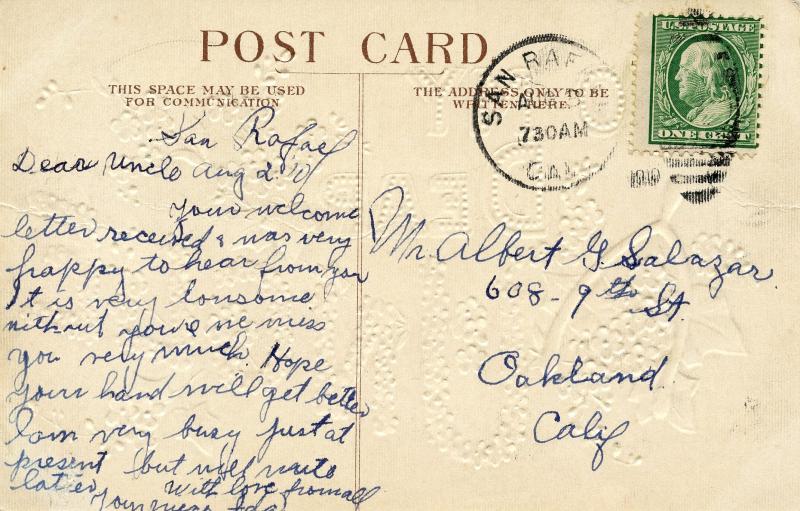 POST CARD
THIS SPACE MAY BE USED
FOR COMMUNICATION
THE ADDRESS ONLY TO BE
WRITTEN HERE.
SAN RAF
730AM
CAL
1910
U.S. POSTAGE
ONE CENT
San Rafael
Dear Uncle Aug 2 '10
Your welcome
letter received & was very
happy to hear from you
It is very lonsome
without you & we miss
you very much. Hope
your hand will get better
I am very busy just at
present but will write
later With love from all
Your niece Ida
Mr. Albert G. Salazar
608 - 9th St.
Oakland
Calif